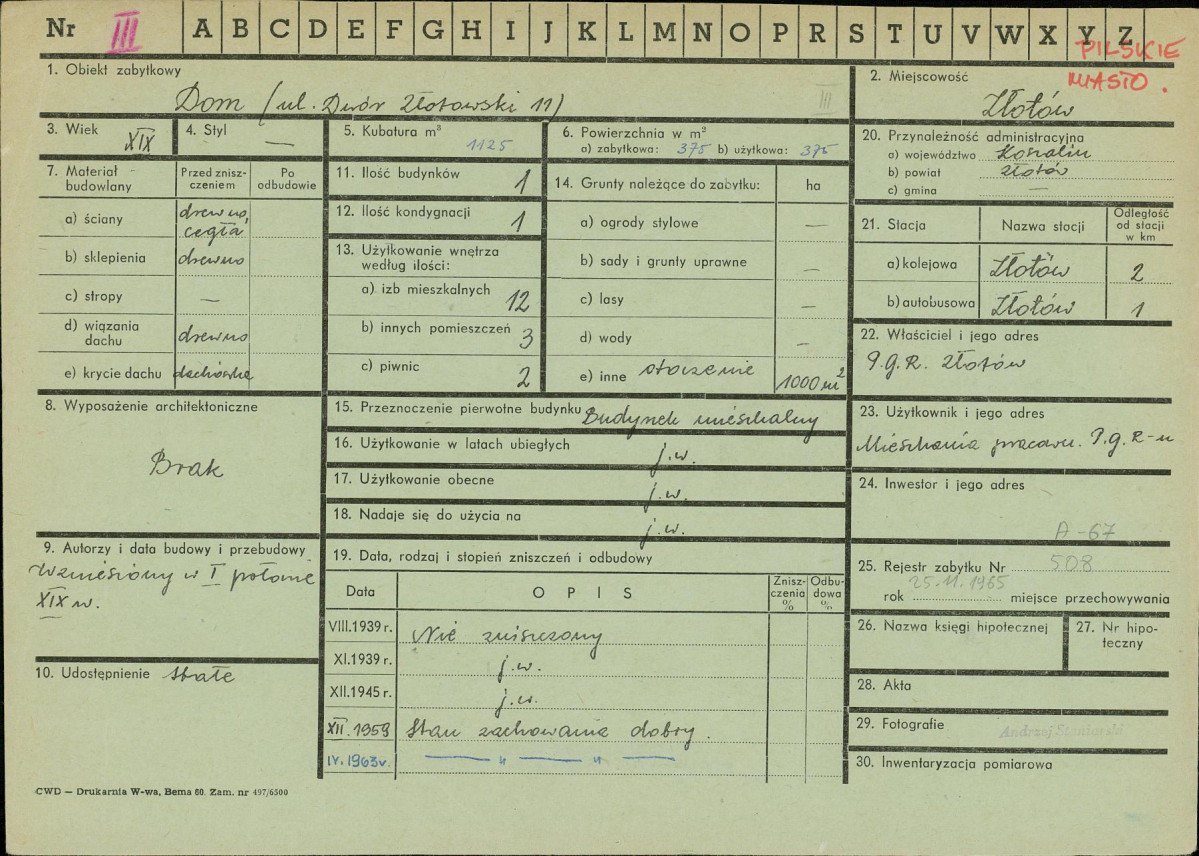 Nr III A B C D E F G H I J K L M N O P R S T U V W X Y Z
PILSKIE
MIASTO.
1. Obiekt zabytkowy
Dom (ul. Dwór Złotowski 11)
III
2. Miejscowość
Złotów
3. Wiek XIX
4. Styl —
5. Kubatura m³
1125
6. Powierzchnia w m²
a) zabytkowa: 375 b) użytkowa: 375
20. Przynależność administracyjna
a) województwo Koszalin
b) powiat złotów
c) gmina —
7. Materiał budowlany
Przed zniszczeniem
Po odbudowie
a) ściany drewno, cegła
b) sklepienia drewno
c) stropy —
d) wiązania dachu drewno
e) krycie dachu dachówka
11. Ilość budynków 1
12. Ilość kondygnacji 1
13. Użytkowanie wnętrza
według ilości:
a) izb mieszkalnych 12
b) innych pomieszczeń 3
c) piwnic 2
14. Grunty należące do zabytku: ha
a) ogrody stylowe —
b) sady i grunty uprawne —
c) lasy —
d) wody —
e) inne otoczenie 1000 m²
21. Stacja Nazwa stacji Odległość od stacji w km
a) kolejowa Złotów 2
b) autobusowa Złotów 1
22. Właściciel i jego adres
P.G.R. Złotów
8. Wyposażenie architektoniczne
Brak
15. Przeznaczenie pierwotne budynku Budynek mieszkalny
16. Użytkowanie w latach ubiegłych j.w.
17. Użytkowanie obecne j.w.
18. Nadaje się do użycia na j.w.
23. Użytkownik i jego adres
Mieszkania pracown. P.G.R-u
24. Inwestor i jego adres
A-67
9. Autorzy i data budowy i przebudowy
Wzniesiony w I połowie
XIX w.
19. Data, rodzaj i stopień zniszczeń i odbudowy
Data OPIS Zniszczenia % Odbudowa %
VIII.1939 r. Nie zniszczony
XI.1939 r. j.w.
XII.1945 r. j.w.
XII.1959 Stan zachowania dobry.
IV.1963r. — " — " —
25. Rejestr zabytku Nr 508
25.11.1965
rok miejsce przechowywania
26. Nazwa księgi hipotecznej
27. Nr hipoteczny
10. Udostępnienie stałe
28. Akta
29. Fotografie
30. Inwentaryzacja pomiarowa
CWD — Drukarnia W-wa, Bema 60. Zam. nr 497/6500